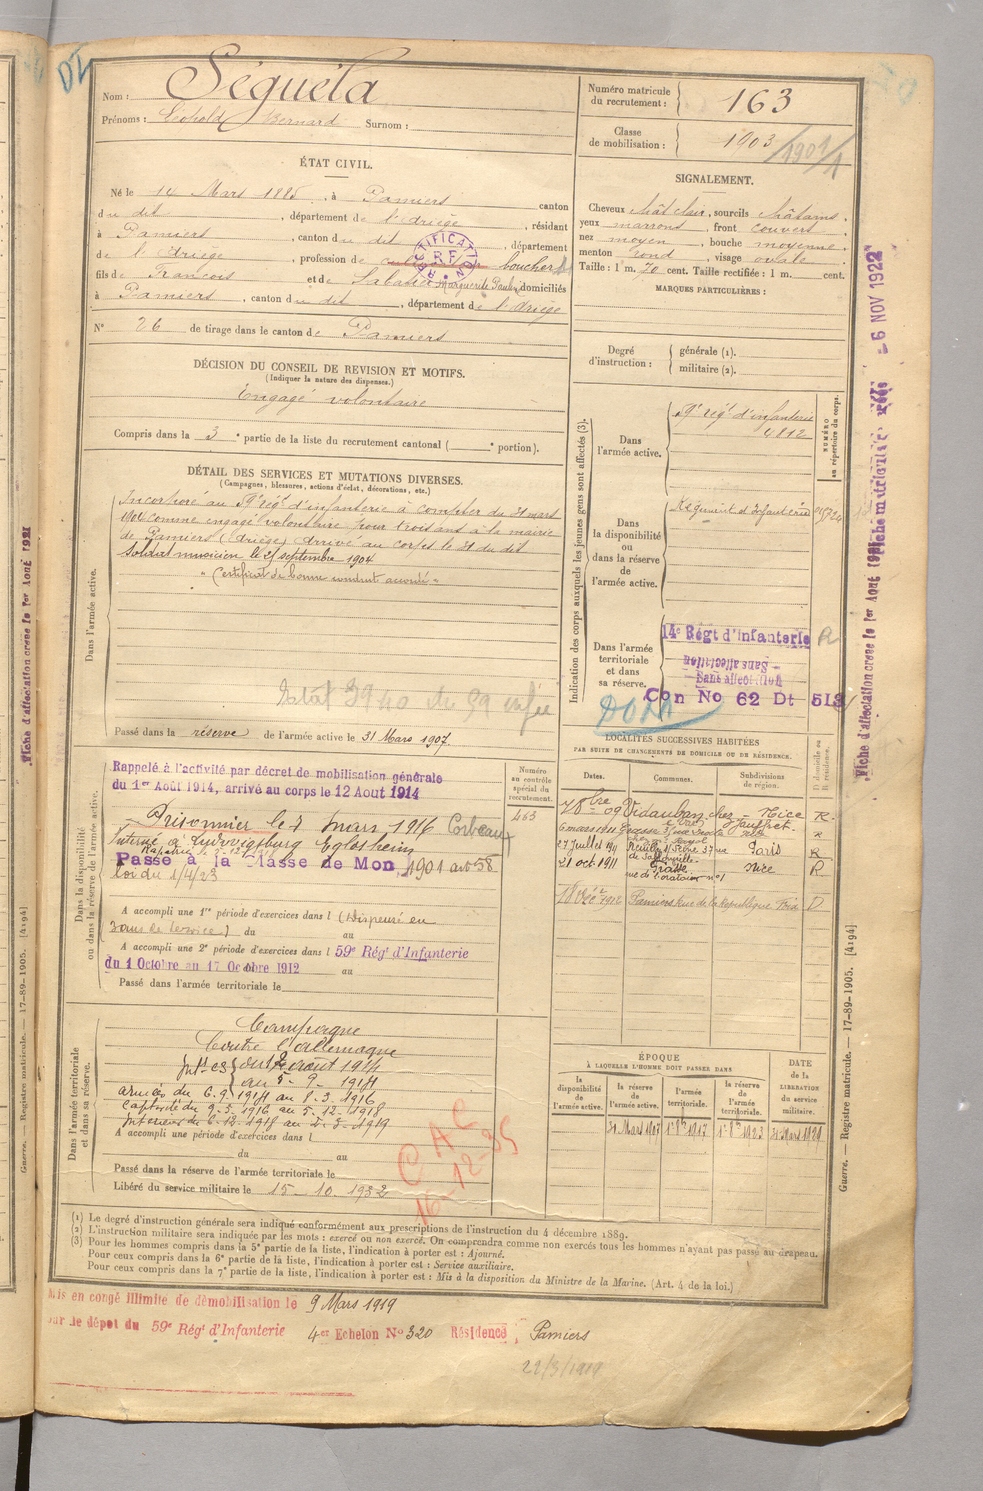 Nom : Séguéla
Prénoms : Léopold Bernard Surnom :
Numéro matricule du recrutement : 163
Classe de mobilisation : 1903 1901/1
ÉTAT CIVIL.
Né le 14 Mars 1885, à Pamiers canton
du dit, département de l'Ariège, résidant
à Pamiers, canton du dit, département
de l'Ariège, profession de boucher
RECTIFICATION RF
fils de François et de Sabatié Marguerite Pauline domiciliés
à Pamiers, canton du dit, département de l'Ariège
N° 26 de tirage dans le canton de Pamiers
SIGNALEMENT.
Cheveux chât clair, sourcils châtains,
yeux marrons, front couvert
nez moyen, bouche moyenne
menton rond, visage ovale
Taille : 1 m. 70 cent. Taille rectifiée : 1 m. cent.
MARQUES PARTICULIÈRES :
Degré d'instruction : générale (1).
militaire (2).
DÉCISION DU CONSEIL DE REVISION ET MOTIFS.
(Indiquer la nature des dispenses.)
Engagé volontaire
Compris dans la 3e partie de la liste du recrutement cantonal ( e portion).
DÉTAIL DES SERVICES ET MUTATIONS DIVERSES.
(Campagnes, blessures, actions d'éclat, décorations, etc.)
Dans l'armée active.
Incorporé au 59e rég' d'infanterie à compter du 31 mars
1904 comme engagé volontaire pour trois ans à la mairie
de Pamiers (Ariège) Arrivé au corps le 31 du dit
Soldat musicien le 25 septembre 1904
"Certificat de bonne conduite accordé"
Passé dans la réserve de l'armée active le 31 Mars 1907.
Indication des corps auxquels les jeunes gens sont affectés (3).
NUMÉRO au répertoire du corps.
Dans l'armée active.
59e rég' d'infanterie
4812
Dans la disponibilité ou dans la réserve de l'armée active.
Régiment d'infanterie
Dans l'armée territoriale et dans sa réserve.
14e Régt d'infanterie R
Sans affectation
Sans affectation
Con No 62 Dt 513
Dans la disponibilité ou dans la réserve de l'armée active.
Rappelé à l'activité par décret de mobilisation générale
du 1er Aout 1914, arrivé au corps le 12 Aout 1914
Prisonnier le 7 mars 1916 Corbeaux
Interné à Ludwigsburg Eglosheim
Passé à la Classe de Mon. 1901 art 58
Loi du 1/4/23
A accompli une 1re période d'exercices dans l (Dispensé en
3 ans de service) du au
A accompli une 2e période d'exercices dans l 59e Régt d'Infanterie
du 1 Octobre au 17 Octobre 1912 au
Passé dans l'armée territoriale le
Numéro au contrôle spécial du recrutement.
463
LOCALITÉS SUCCESSIVES HABITÉES
PAR SUITE DE CHANGEMENTS DE DOMICILE OU DE RÉSIDENCE.
Dates. Communes. Subdivisions de région. D domicile ou R résidence.
7 8bre 09 Vidauban chez Jauffret. Nice R.
6 mars 1911 Grasse
27 juillet 1911 Paris R
21 oct. 1911 Grasse rue de l'oratoire n°1 Nice R
18 Déc 1912 Pamiers rue de la République Foix D
Dans l'armée territoriale et dans sa réserve.
Campagne
Contre l'allemagne
Intér { du 12 aout 1914
au 5 - 9 - 1914
armées du 6.9.1914 au 8.3.1916
Captivité du 9.3.1916 au 5.12.1918
Intérieur du 6.12.1918 au
A accompli une période d'exercices dans l
du au
Passé dans la réserve de l'armée territoriale le
Libéré du service militaire le 15 - 10 - 1932
CAC
16-12-35
ÉPOQUE
À LAQUELLE L'HOMME DOIT PASSER DANS
la disponibilité de l'armée active. la réserve de l'armée active. l'armée territoriale. la réserve de l'armée territoriale. DATE de la LIBÉRATION du service militaire.
31 Mars 1907 1er 8bre 1917 1er 8bre 1923 31 Mars 1929
(1) Le degré d'instruction générale sera indiqué conformément aux prescriptions de l'instruction du 4 décembre 1889.
(2) L'instruction militaire sera indiquée par les mots : exercé ou non exercé. On comprendra comme non exercés tous les hommes n'ayant pas passé au drapeau.
(3) Pour les hommes compris dans la 5e partie de la liste, l'indication à porter est : Ajourné.
Pour ceux compris dans la 6e partie de la liste, l'indication à porter est : Service auxiliaire.
Pour ceux compris dans la 7e partie de la liste, l'indication à porter est : Mis à la disposition du Ministre de la Marine. (Art. 4 de la loi.)
Mis en congé illimité de démobilisation le 9 Mars 1919
le dépot du 59e Régt d'Infanterie 4er Echelon No 320 Résidence Pamiers
22/3/1919
Fiche d'affectation créée le 1er Août 1921
Fiche matricule créée - 6 NOV 1922
Guerre. — Registre matricule. — 17-89-1905. [4194]
Fiche d'affectation créée le 1er Août 1921
Guerre. — Registre matricule. — 17-89-1905. [4194]